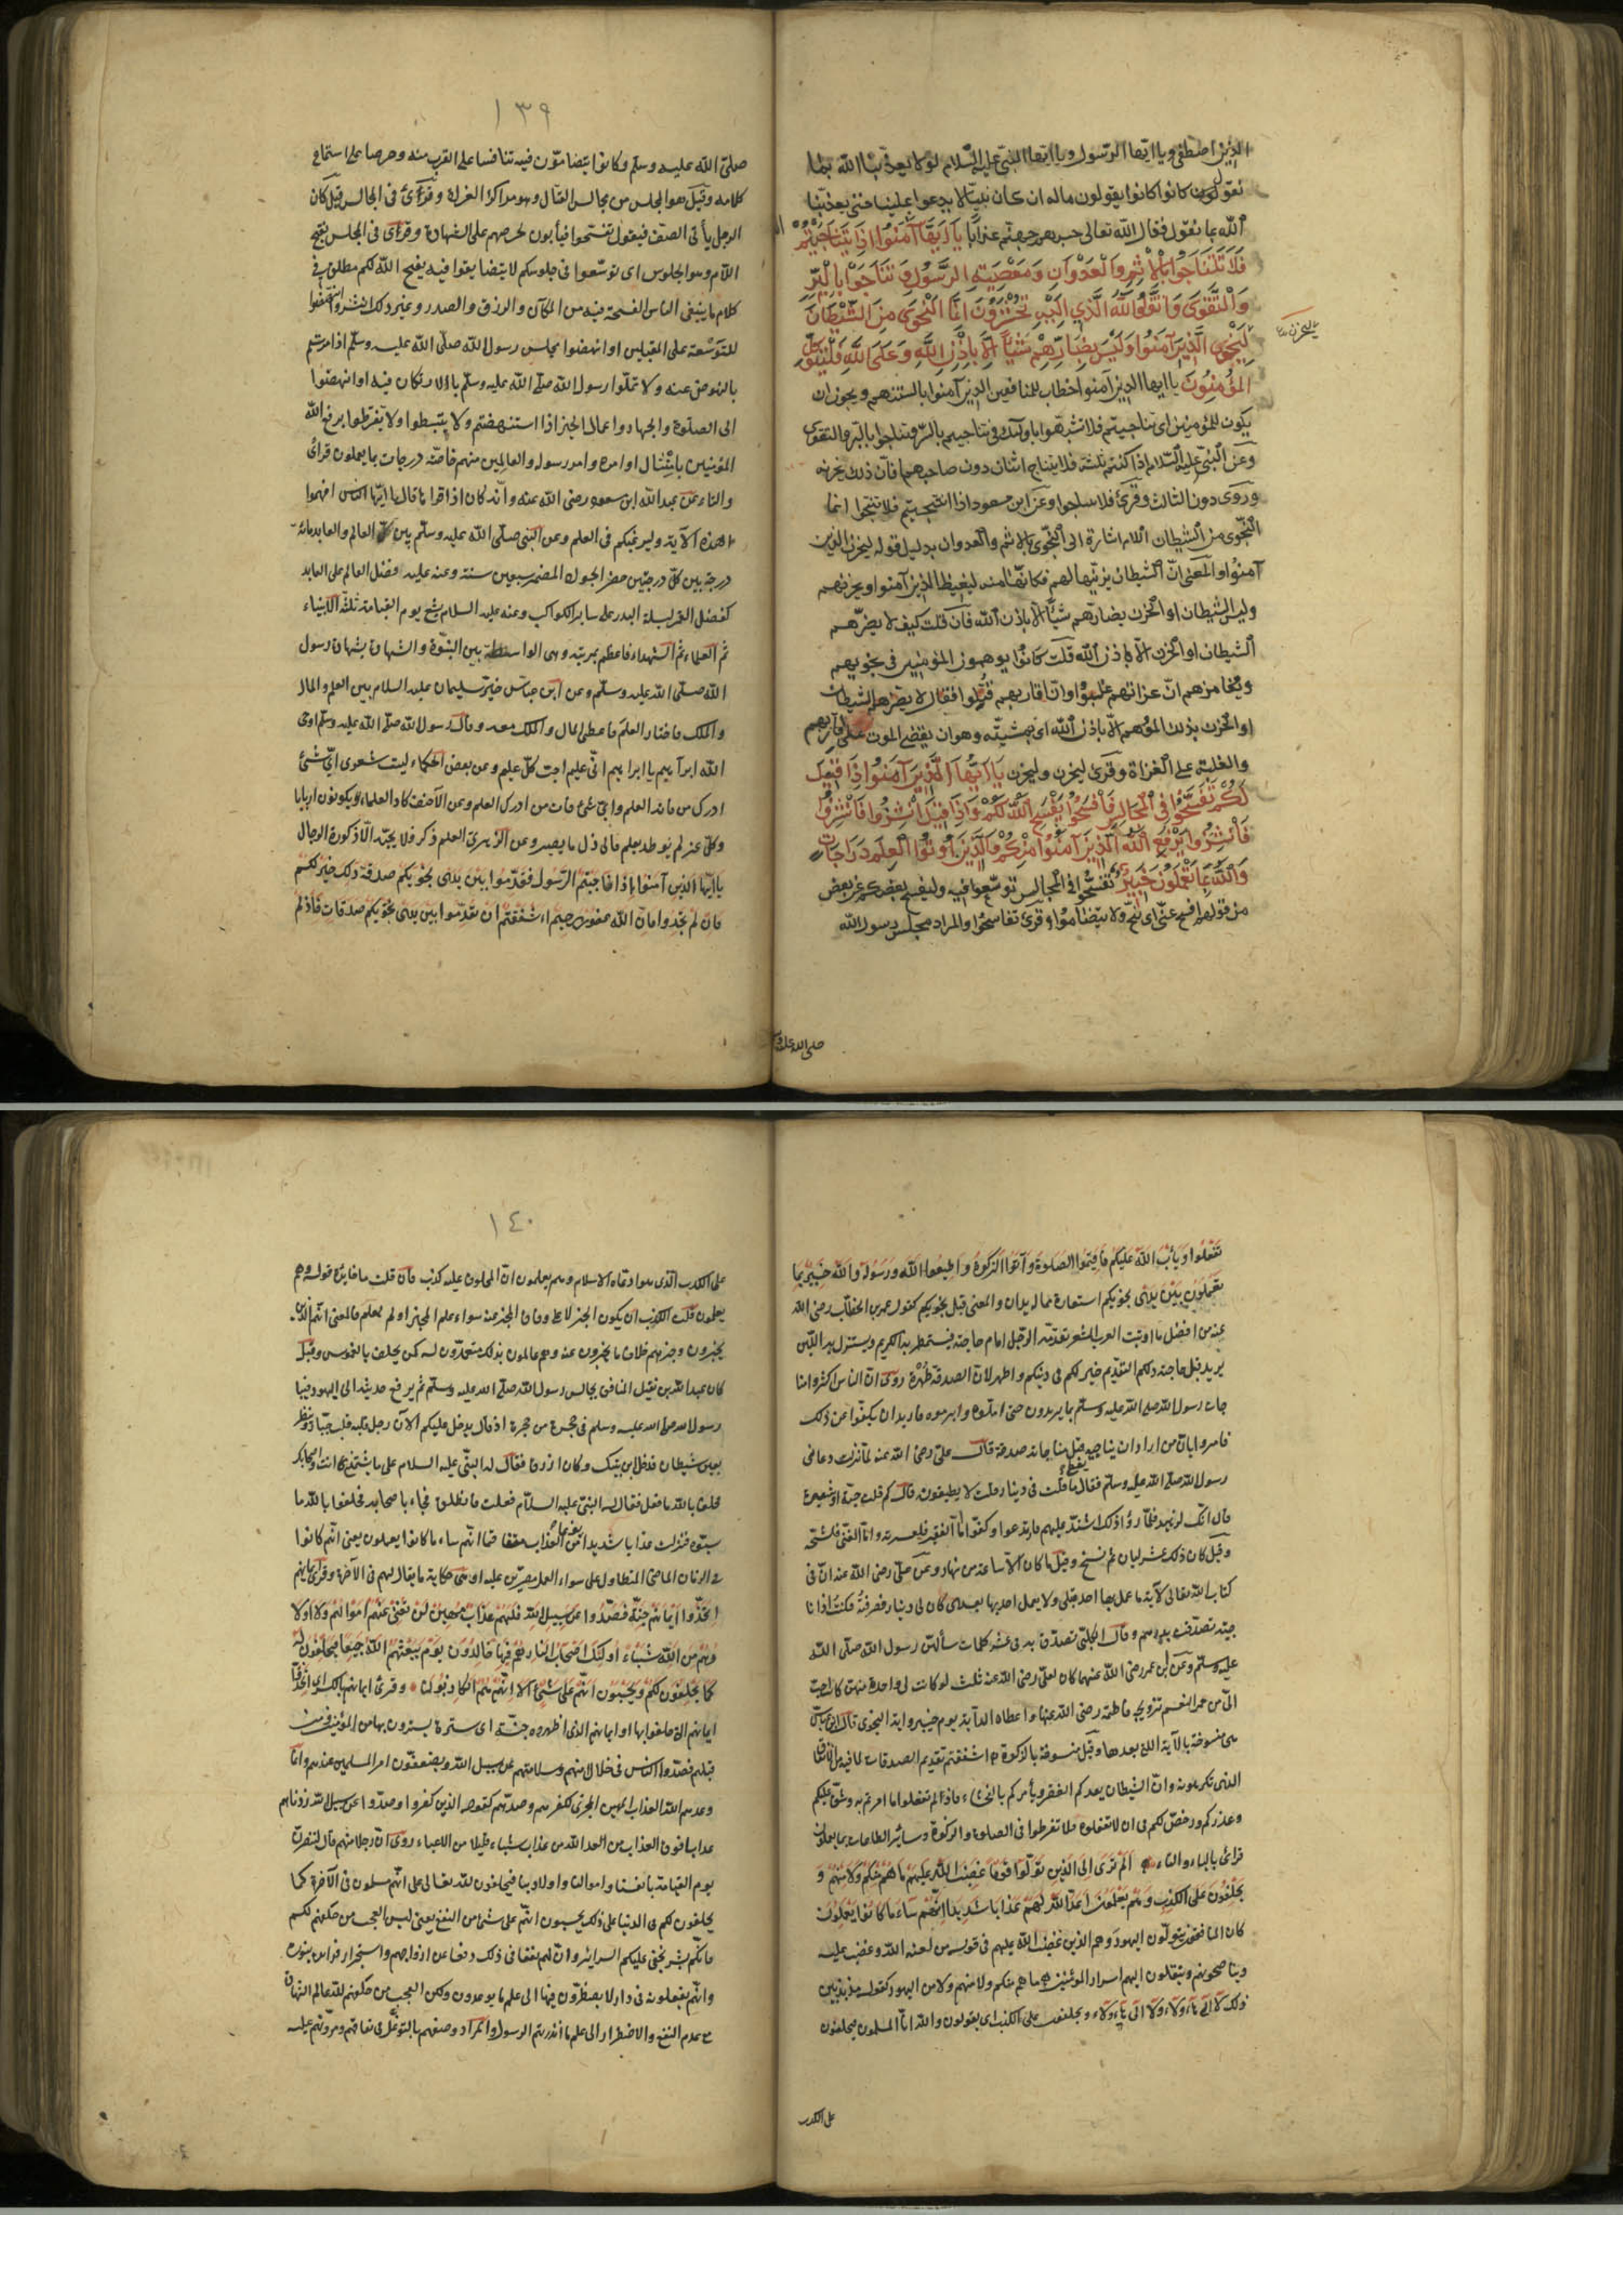 الذين اصطفى ويا ايها الرسول ويا ايها النبي عليه السلام لولا يعذبنا الله بما
نقول كانوا يقولون ماله ان كان نبيا لا يدعوا علينا حتى يعذبنا
الله بما نقول فقال الله تعالى حسبهم جهنم عذابا يا ايها آمنوا اذا تناجيتم
فلا تتناجوا بالاثم والعدوان ومعصية الرسول وتناجوا بالبر
والتقوى واتقوا الله الذي اليه تحشرون انما النجوى من الشيطان
ليحزن
ليحزن الذين آمنوا وليس بضارهم شيئا الا باذن الله وعلى الله فليتوكل
المؤمنون يا ايها الذين آمنوا خطاب للمنافقين الذين آمنوا بالسنتهم ويجوز ان
يكون للمؤمنين اى تناجيتم فلا تشبهوا باولئك في تناجيهم بالشر وتناجوا بالبر والتقوى
وعن النبي عليه السلام اذا كنتم ثلثة فلا يتناج اثنان دون صاحبهما فان ذلك يحزنه
وروى دون الثالث وقرئ فلا وعن ابن مسعود اذا انتجيتم فلا تنتجوا انما
النجوى من الشيطان اللام اشارة الى النجوى بالاثم والعدوان بدليل قوله ليحزن الذين
آمنوا والمعنى ان الشيطان يزينها لهم فكانها منه ليغيظ الذين آمنوا ويحزنهم
وليس الشيطان او الحزن بضارهم شيئا الا باذن الله فان قلت كيف لا يضرهم
الشيطان او الحزن الا باذن الله قلت كانوا يوهمون المؤمنين في نجويهم
وتغامزهم ان غزاتهم غلبوا وان اقاربهم قتلوا فقال لا يضرهم الشيطان
او الحزن بذلك الموهم الا باذن الله اى بمشيته وهو ان يقضى الموت على اقاربهم
والغلبة على الغزاة وقرئ ليحزن وليحزن يا ايها الذين آمنوا اذا قيل
لكم تفسحوا في المجالس فافسحوا يفسح الله لكم واذا قيل انشزوا فانشزوا
فانشزوا يرفع الله الذين آمنوا منكم والذين اوتوا العلم درجات
والله بما تعملون خبير تفسحوا في المجالس توسعوا فيه وليفسح بعضكم عن بعض
من قولهم افسح عني اى تنح ولا يتضاموا وقرئ تفاسحوا والمراد مجلس رسول الله
صلى الله عليه و
١٣٩
صلى الله عليه وسلم وكانوا يتضامون فيه تنافسا على القرب منه وحرصا على استماع
كلامه وقيل هو المجلس من مجالس القتال وهو مراكز الغزاة وقرئ في المجالس قيل كان
الرجل يأتى الصف فيقول تفسحوا فيأبون لحرصهم على الشهادة وقرئ في المجلس بفتح
اللام وهو الجلوس اى توسعوا في جلوسكم لا يتضايقوا فيه يفسح الله لكم مطلق في
كل ما يبتغى الناس الفسحة فيه من المكان والرزق والصدر وغير ذلك انشزوا انهضوا
للتوسعة على المقبلين او انهضوا مجلس رسول الله صلى الله عليه وسلم اذا امرتم
بالنهوض عنه ولا تملوا رسول الله صلى الله عليه وسلم بالارتكان فيه او انهضوا
الى الصلوة والجهاد واعمال الخير اذا استنهضتم ولا تثبطوا ولا تفرطوا يرفع الله
المؤمنين بامتثال اوامره واوامر رسوله والعالمين منهم خاصة درجات بما يعملون قرائ
والتاء عن عبد الله ابن مسعود رضى الله عنه وانه كان اذا قراها قال يا ايها الناس افهموا
هذه الآية وليرغبكم في العلم وعن النبي صلى الله عليه وسلم بين العالم والعابد مائة
درجة بين كل درجتين حضر الجواد المضمر سبعين سنة وعنه عليه فضل العالم على العابد
كفضل القمر ليلة البدر على ساير الكواكب وعنه عليه السلام يشفع يوم القيامة ثلثة الانبياء
ثم العلماء ثم الشهداء فاعظم بمرتبة وهى الواسطة بين النبوة والشهادة بشهادة رسول
الله صلى الله عليه وسلم وعن ابن عباس خير سليمان عليه السلام بين العلم والمال
والملك فاختار العلم فاعطى المال والملك معه وقال رسول الله صلى الله عليه وسلم اوحى
الله ابرآهيم يا ابراهيم انى عليم احب كل عليم وعن بعض الحكماء ليت شعرى اى شئ
ادرك من فاته العلم واى شئ فات من ادرك العلم وعن الاحنف كاد العلماء يكونون اربابا
وكل عز لم يوطد بعلم فالى ذل ما يصير وعن الزهرى العلم ذكر فلا يحبه الا ذكورة الرجال
يا ايها الذين آمنوا اذا ناجيتم الرسول فقدموا بين يدى نجويكم صدقة ذلك خير لكم
فان لم تجدوا فان الله غفور رحيم ءاشفقتم ان تقدموا بين يدى نجويكم صدقات فاذ لم
تفعلوا وتاب الله عليكم فاقيموا الصلوة وآتوا الزكوة واطيعوا الله ورسوله والله خبير بما
تعملون بين يدى نجويكم استعارة مما له يدان والمعنى قبل نجويكم كقول عمر بن الخطاب رضى الله
عنه من افضل ما اوتيت العرب الشعر تقدمه الرجل امام حاجته فيستمطر به الكريم ويستنزل به اللئيم
يريد قبل حاجته ذلكم التقديم خير لكم في دينكم واطهر لان الصدقة طهرة روى ان الناس اكثروا مناجات
رسول الله صلى الله عليه وسلم بما يريدون حتى املوه وابرموه فاريد ان يكفوا عن ذلك
فامروا بان من اراد ان يناجيه قبل مناجاته صدقة قال على رضى الله عنه لما نزلت دعانى
رسول الله صلى الله عليه وسلم فقال ما قلت في دينار قلت لا يطيقونه قال كم قلت حبة او شعيرة
قال انك لزهيد فلما رؤا ذلك اشتد عليهم فارتدعوا وكفوا اما الفقير فلعسرته واما الغنى فلشحه
وقيل كان ذلك عشر ليال ثم نسخ وقيل ما كان الا ساعة من نهار وعن على رضى الله عنه ان في
كتاب الله تعالى لآية ما عمل بها احد قبلى ولا يعمل احد بها بعدى كان لى دينار فصرفته فكنت اذا نا
جيته تصدقت بدرهم وقال الكلبى تصدق به في عشر كلمات سألهن رسول الله صلى الله
عليه وسلم وعن ابن عمر رضى الله عنهما كان لعلى رضى الله عنه ثلث لو كانت لى واحدة منهن كان احب
الى من حمر النعم تزويجه فاطمة رضى الله عنها واعطاه الراية يوم خيبر واية النجوى قال ابن عباس
هى منسوخة بالآية اللتى بعدها وقيل منسوخة بالزكوة ءاشفقتم تقديم الصدقات لما فيه من الانفاق
الذى تكرهونه وان الشيطان يعدكم الفقر ويأمركم بالفحشاء فاذ لم تفعلوا ما امرتم به وشق عليكم
وعذركم ورخص لكم في ان لا تفعلوه فلا تفرطوا في الصلوة والزكوة وسائر الطاعات بما يعملون
قرائ بالياء والتاء الم ترى الى الذين تولوا قوما غضب الله عليهم ما هم منكم ولا منهم و
يحلفون على الكذب وهم يعلمون اعد الله لهم عذابا شديدا انهم ساء ما كانوا يعملون
كان المنافقون يتولون اليهود وهم الذين غضب الله عليهم في قوله من لعنه الله وغضب عليه
ويناصحونهم وينقلون اليهم اسرار المؤمنين ما هم منكم ولا منهم ولا من اليهود كقوله مذبذبين
ذلك لا الى هاؤلاء ولا الى هاؤلاء ويحلفون على الكذب اى يقولون والله انا لمسلمون فيحلفون
على الكذب
١٤٠
على الكذب الذى هو ادعاه الاسلام وهم يعلمون ان المحلوف عليه كذب فان قلت ما فايدة قوله وهم
يعلمون قلت الكذب ان يكون الخبر لا على وفاق المخبر عنه سواء علم المخبر او لم يعلم فالمعنى انهم الذين
يخبرون وخبرهم خلاف ما يخبرون عنه وهم عالمون بذلك متعمدون له كمن يحلف بالغموس وقيل
كان عبد الله بن نفيل المنافق يجالس رسول الله صلى الله عليه وسلم ثم يرفع حديثه الى اليهود فبينا
رسول الله صلى الله عليه وسلم في حجرة من حجرة اذ قال يدخل عليكم الآن رجل قلبه قلب جبار وينظر
بعين شيطان فدخل ابن نبتل وكان ازرق فقال له النبي عليه السلام على ما يشتمنى انت واصحابك
فحلف بالله ما فعل فقال له النبي عليه السلام فعلت فانطلق فجاء باصحابه فحلفوا بالله ما
سبوه فنزلت عذابا شديدا نوعا من العذاب متفاقما انهم ساء ما كانوا يعملون يعنى انهم كانوا
في الزمان الماضى المتطاول على سواء العمل مصرين عليه او هى حكاية ما يقال لهم في الآخرة وقرئ ايمانهم
اتخذوا ايمانهم جنة فصدوا عن سبيل الله فلهم عذاب مهين لن تغنى عنهم اموالهم ولا اولا
دهم من الله شيئاء اولئك اصحاب النار هم فيها خالدون يوم يبعثهم الله جميعا فيحلفون له
كما يحلفون لكم ويحسبون انهم على شئ الا انهم هم الكاذبون وقرئ ايمانهم بالكسر اى اتخذوا
ايمانهم التى حلفوا بها او ايمانهم الذى اظهروه جنة اى سترة يستترون بها من المؤمنين ومن
قتلهم فصدوا الناس في خلال امنهم وسلامتهم عن سبيل الله ويضعفون امر المسلمين عندهم وانما
وعدهم الله العذاب المهين المخزى لكفرهم وصدهم كقوله الذين كفروا وصدوا عن سبيل الله زدناهم
عذابا فوق العذاب من الله من عذاب شيئاء قليلا من الاغناء روى ان رجلا منهم قال لننصرن
يوم القيامة بانفسنا واموالنا واولادنا فيحلفون لله تعالى على انهم مسلمون في الآخرة كما
يحلفون لكم في الدنيا على ذلك يحسبون انهم على شئ من النفع يعنى ليس العجب من حلفهم لكم
فانكم بشر تخفى عليكم السرائر وان لهم نفعا في ذلك دفعا عن ارواحهم واستجرار فوايد دنيوية
وانهم يفعلونه في دار لا يضطرون فيها الى علم ما يوعدون ولكن العجب من حلفهم لله عالم
مع عدم النفع والاضطرار الى علم ما انذرتهم الرسول والمراد وصفهم بالتوغل في نفاقهم ومرونهم عليه